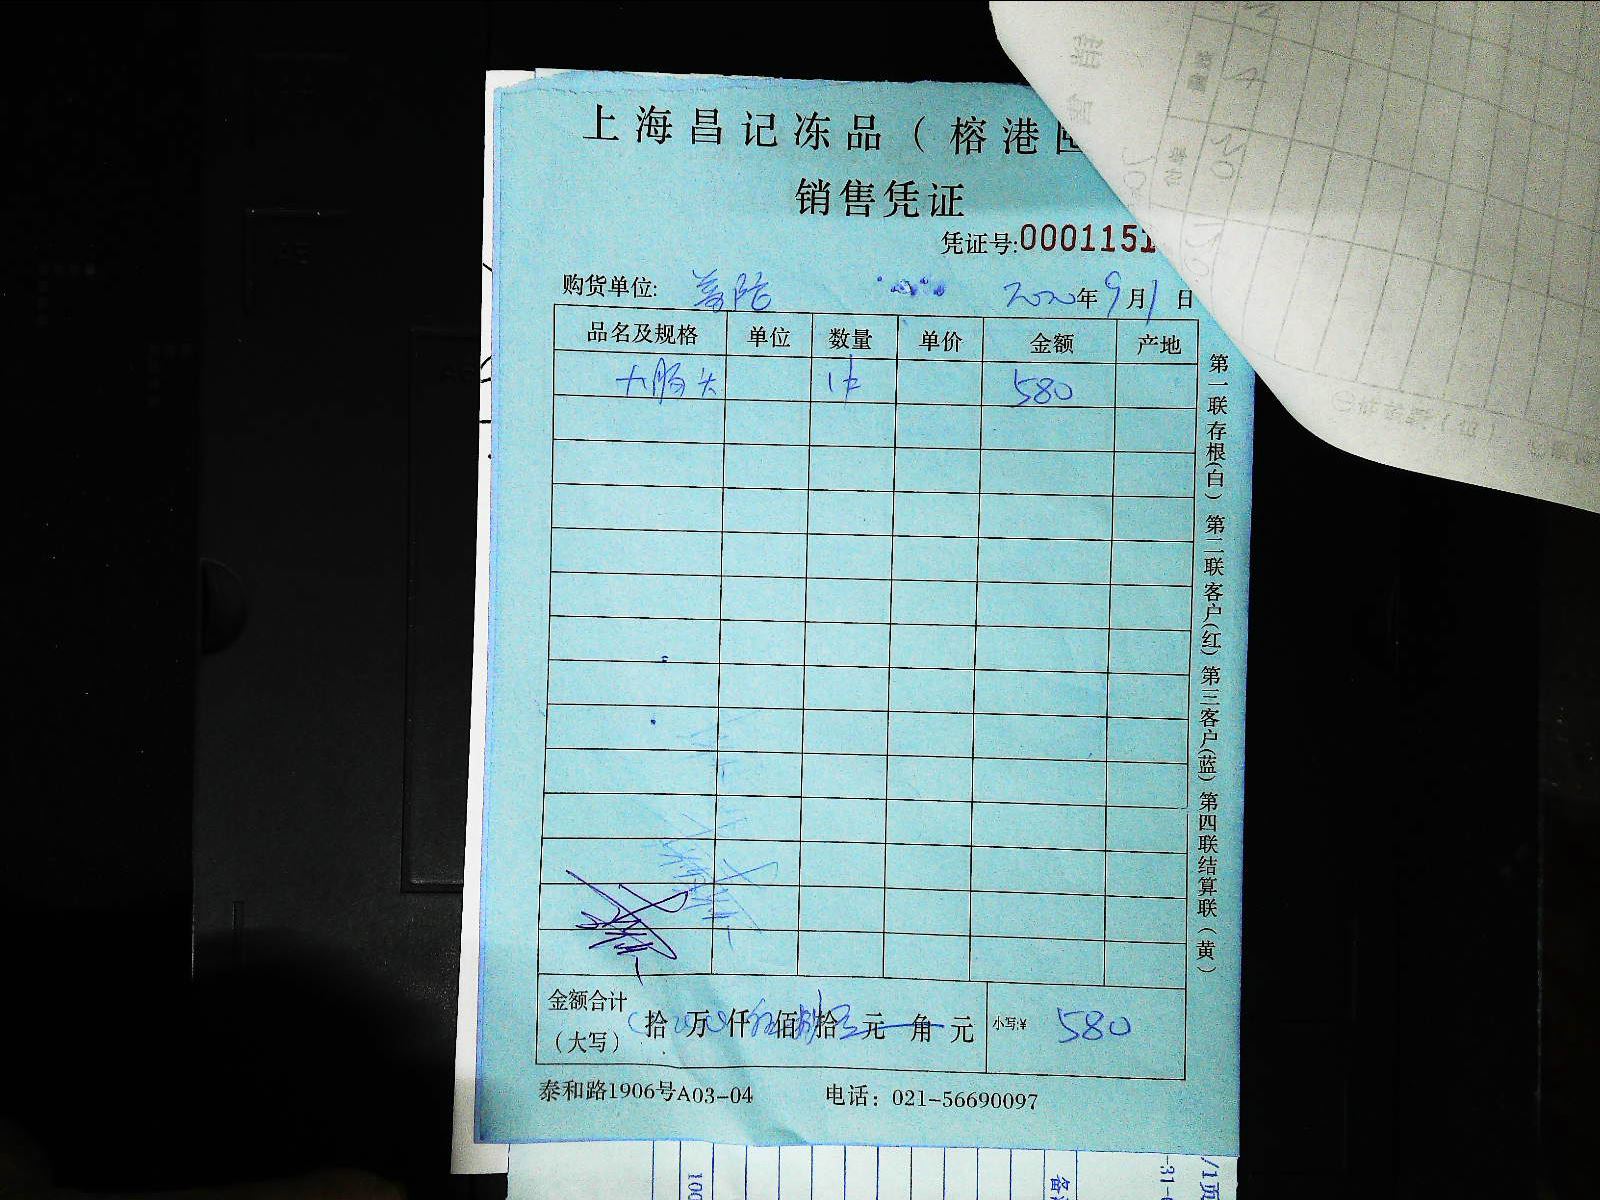 上海昌记冻品（榕港
销售凭证
凭证号:0001151
购货单位: 2020年9月1日
品名及规格 单位 数量 单价 金额 产地
大肠头 1件 580
第一联存根(白) 第二联客户(红) 第三客户(蓝) 第四联结算联(黄)
金额合计(大写) 拾 万 仟 伍佰捌拾 元 角 元 小写:¥ 580
泰和路1906号A03-04 电话：021-56690097